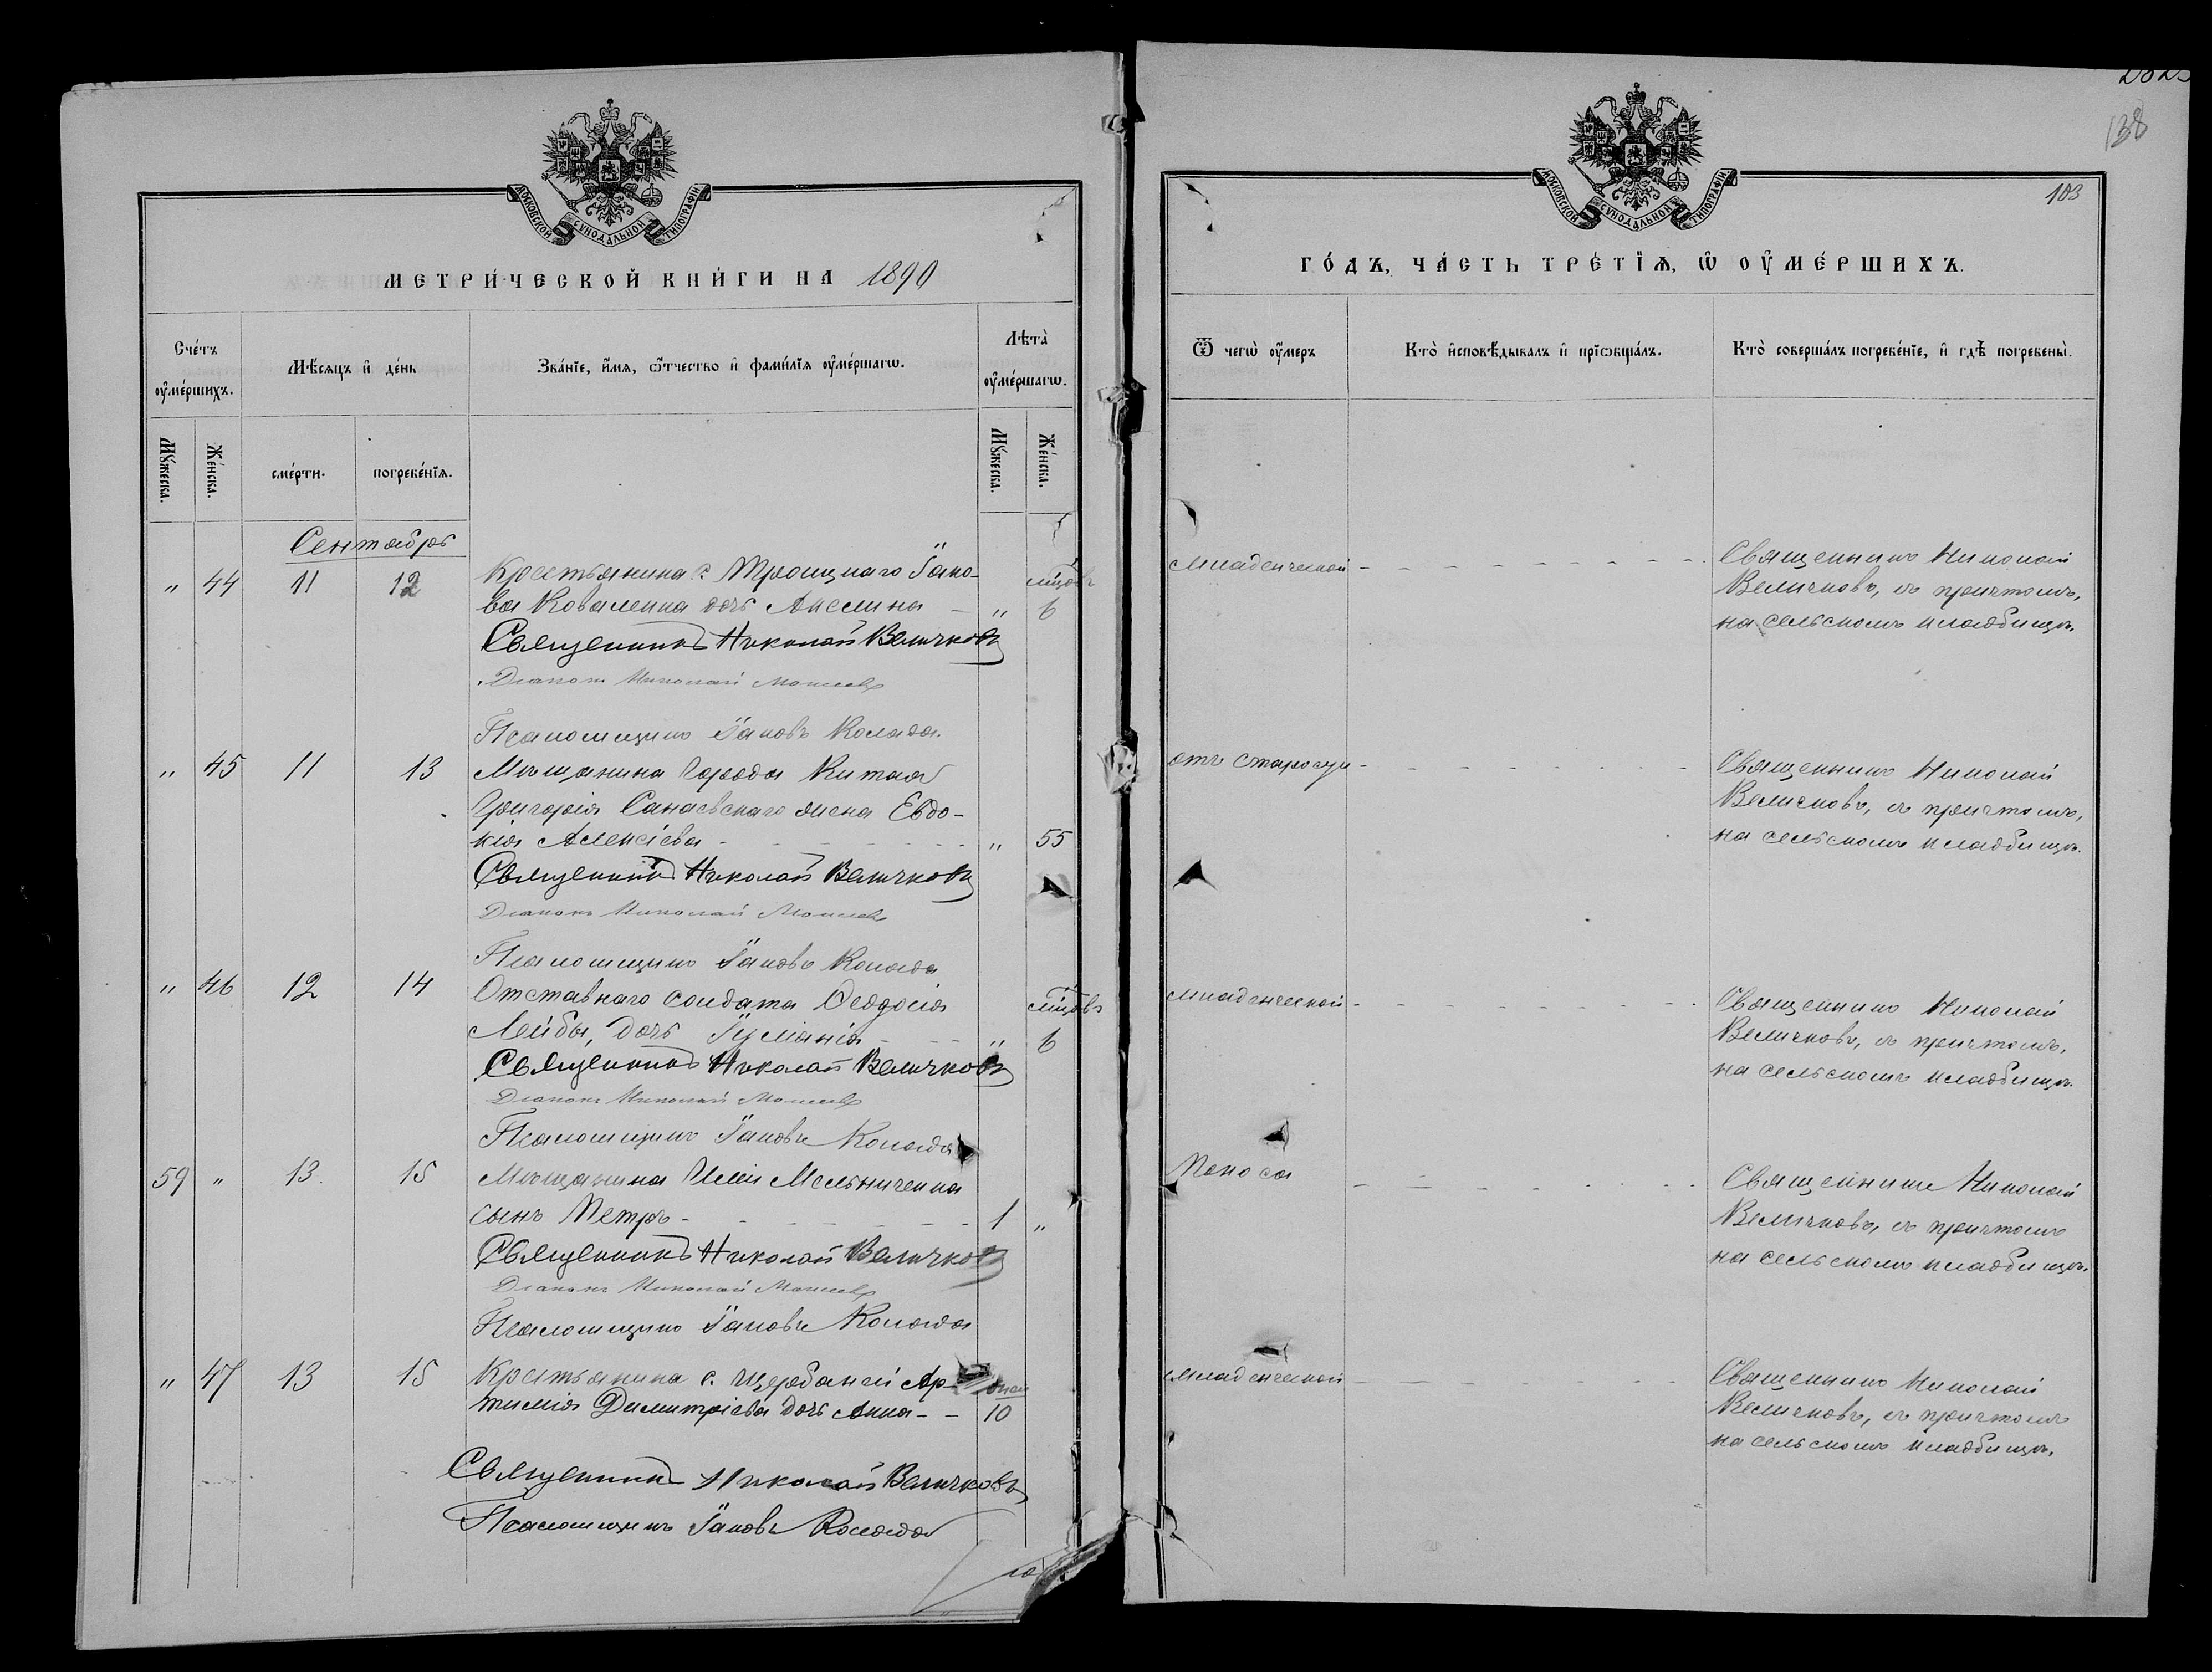 2829
138
103
МОСКОВСКОЙ СѴНОДАЛЬНОЙ ТИПОГРАФІИ
МЕТРИ́ЧЕСКОЙ КНИ́ГИ НА 1890
Сче́тъ ᲂу҆ме́ршихъ.
Мѣ́сяцъ и҆ де́нь
Зва́нїе, и҆́мя, ѻ҆́тчество и҆ фами́лїя ᲂу҆ме́ршагѡ.
Лѣта̀ ᲂу҆ме́ршагѡ.
Мꙋ́жеска.
Же́нска.
сме́рти.
погребе́нїя.
Мꙋ́жеска.
Же́нска.
Сентябрь
" 44 11 12 Крестьянина с. Троицкаго Іако-
мѣсцовъ
ва Коваленка дочь Акелина - " 6
Священникъ Николай Величковъ
Діаконъ Николай Моисеевъ
Псаломщикъ Іаковъ Коляда.
" 45 11 13 Мѣщанина города Китая
Григорія Санаевскаго жена Евдо-
кія Алексіева - " 55
Священникъ Николай Величковъ
Діаконъ Николай Моисеевъ
Псаломщикъ Іаковъ Коляда
" 46 12 14 Отставнаго солдата Ѳеодосія
мѣсцовъ
Лейбы, дочь Іуліанія - " 6
Священникъ Николай Величковъ
Діаконъ Николай Моисеевъ
Псаломщикъ Іаковъ Коляда
59 " 13. 15 Мѣщанина Иліи Мельниченка
сынъ Петръ - 1 "
Священникъ Николай Величковъ
Діаконъ Николай Моисеевъ
Псаломщикъ Іаковъ Коляда
" 47 13 15 Крестьянина с. Щербаней Ар-
дней
тимія Димитріева дочь Анна - - 10
Священникъ Николай Величковъ
Псаломщикъ Іаковъ Коляда
МОСКОВСКОЙ СѴНОДАЛЬНОЙ ТИПОГРАФІИ
ГО́ДЪ, ЧА́СТЬ ТРЕ́ТЇѦ, Ѡ҆ ОУ҆МЕ́РШИХЪ.
Ѿ чегѡ̀ ᲂу҆́меръ
Кто̀ и҆сповѣ́дывалъ и҆ прїѡбща́лъ.
Кто̀ соверша́лъ погребе́нїе, и҆ гдѣ̀ погребены̀.
младенческой - Священникъ Николай
Величковъ, съ причтомъ,
на сельскомъ кладбищѣ.
отъ старости - Священникъ Николай
Величковъ, съ причтомъ,
на сельскомъ кладбищѣ.
младенческой - Священникъ Николай
Величковъ, съ причтомъ,
на сельскомъ кладбищѣ.
Поноса - Священникъ Николай
Величковъ, съ причтомъ
на сельскомъ кладбищѣ.
младенческой - Священникъ Николай
Величковъ, съ причтомъ
на сельскомъ кладбищѣ.